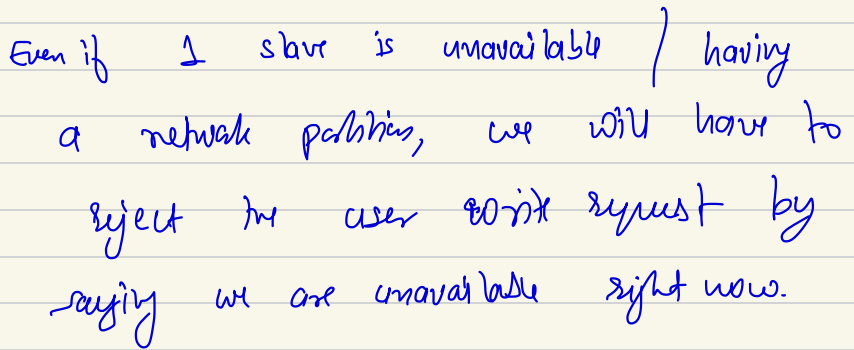 Even if 1 slave is unavailable / having
a network partition, we will have to
reject the user write request by
saying we are unavailable right now.